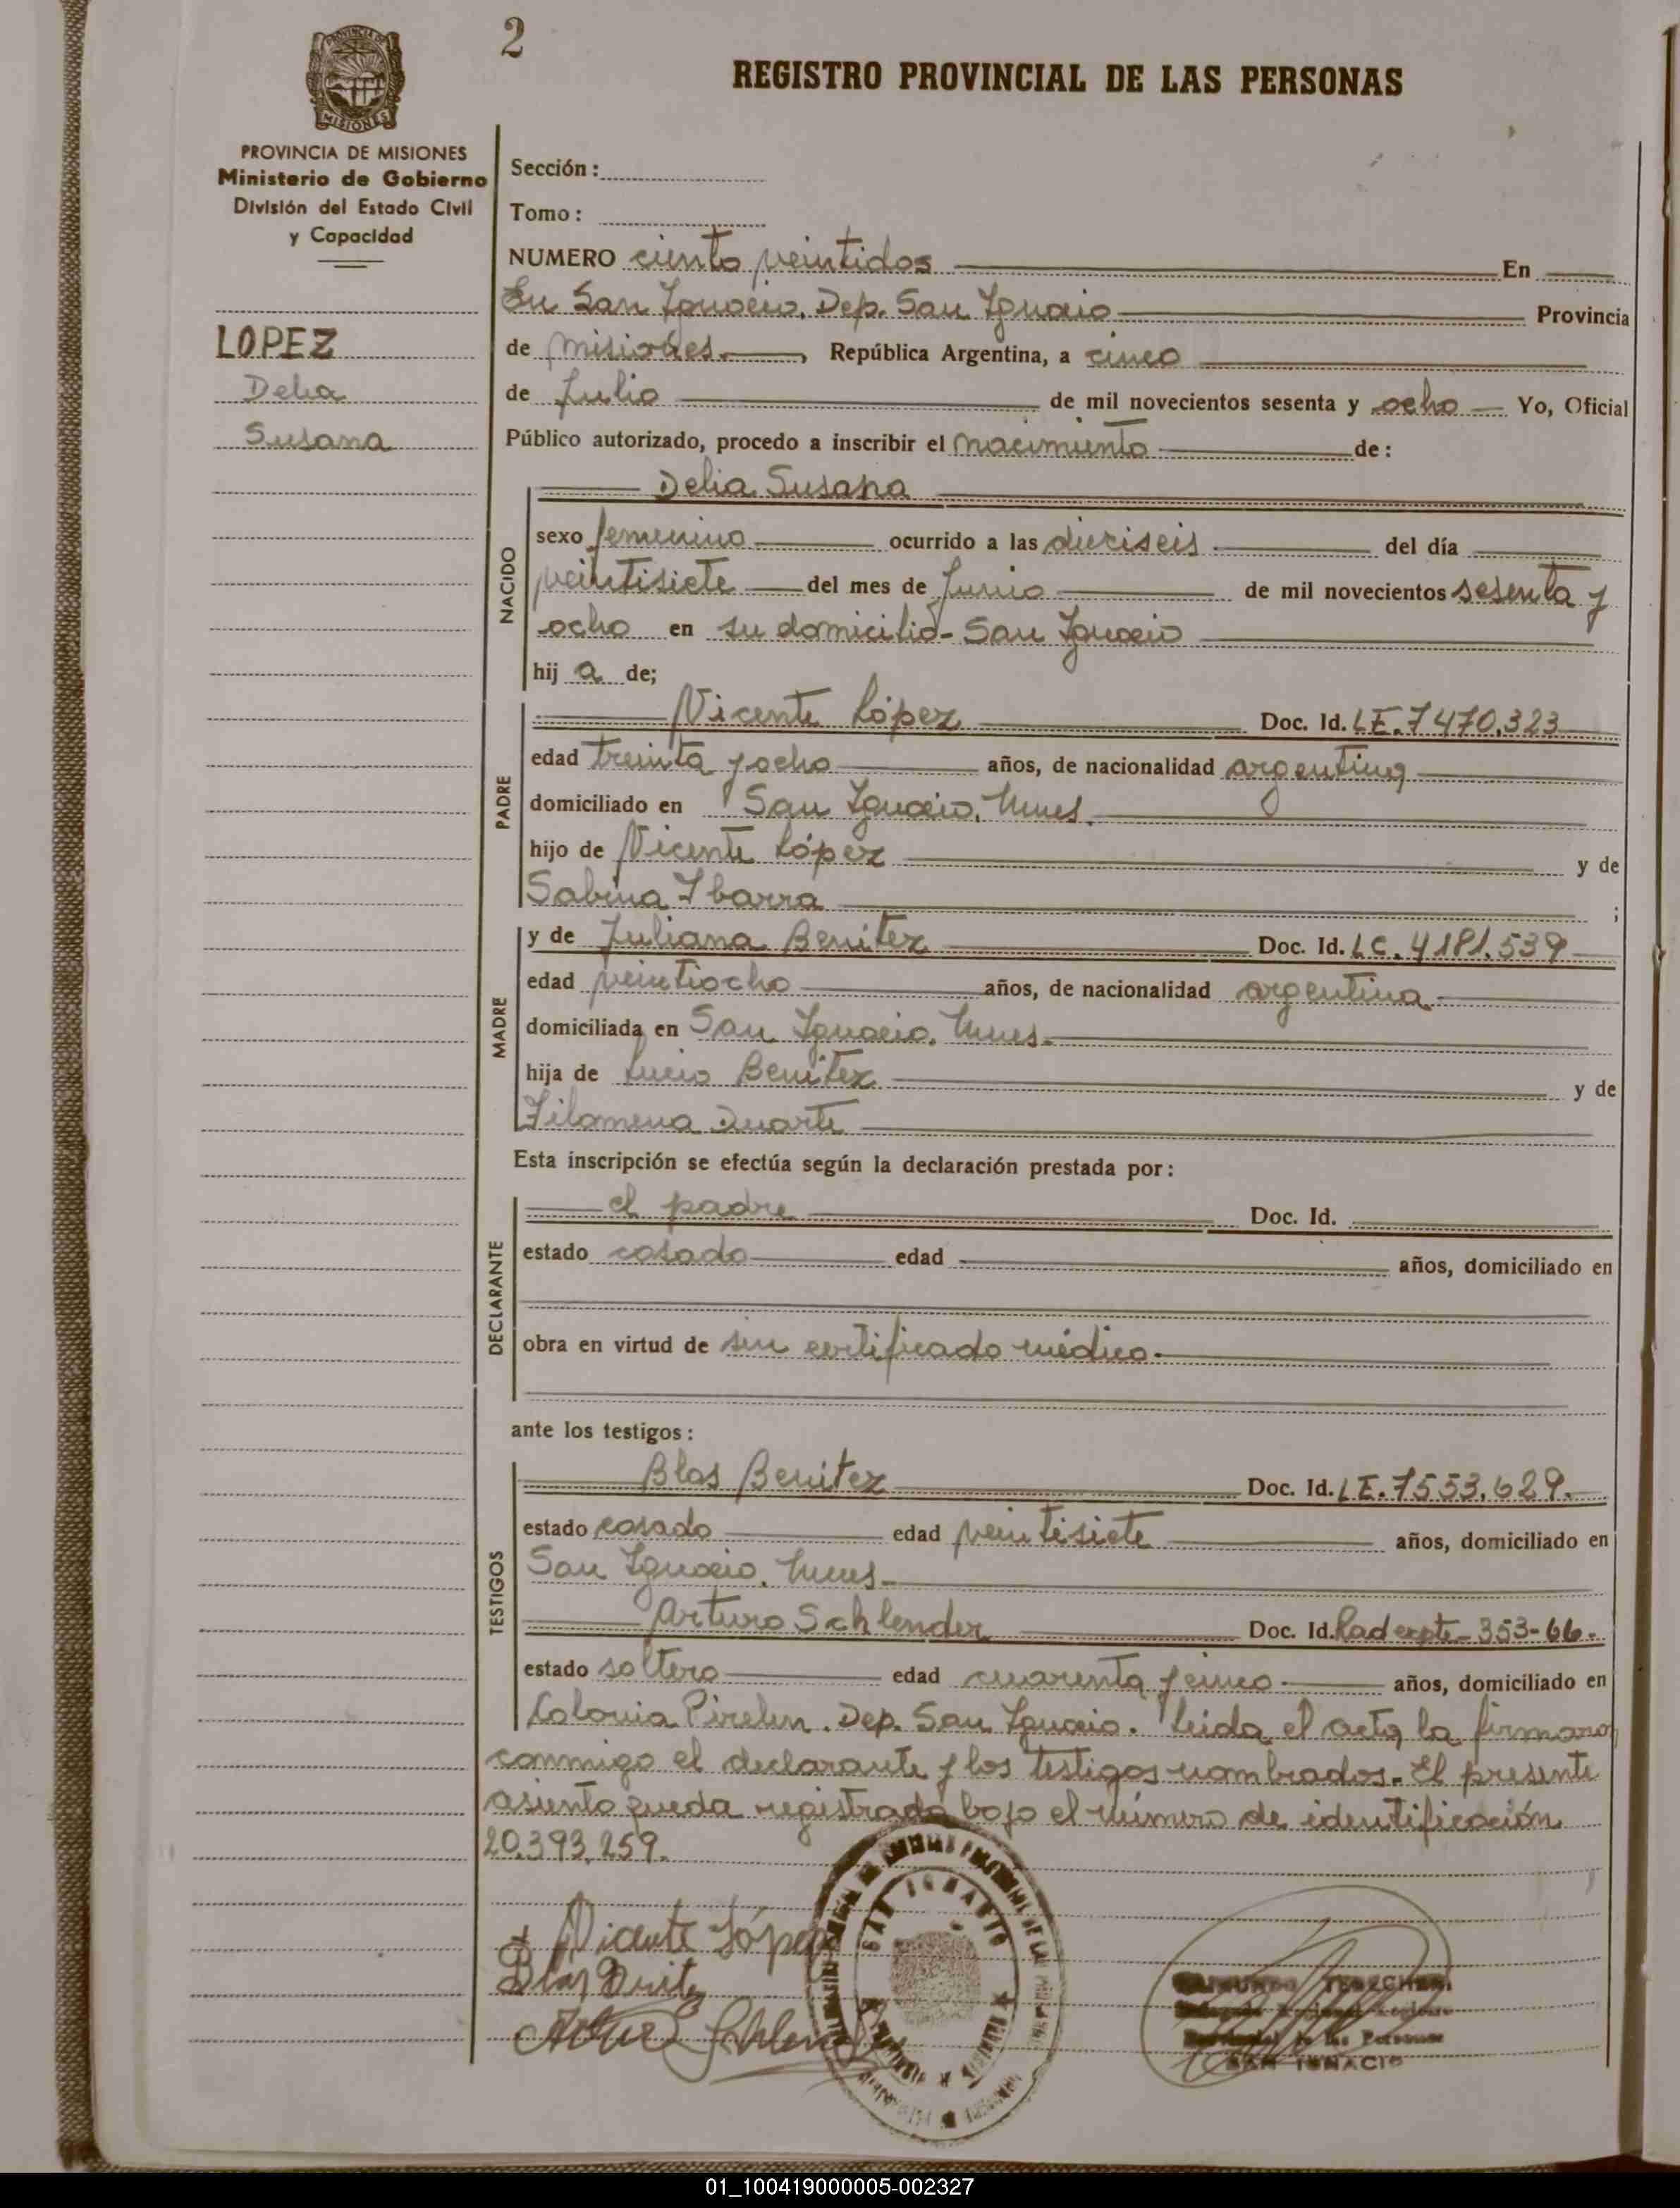 2
REGISTRO PROVINCIAL DE LAS PERSONAS
PROVINCIA DE MISIONES
Ministerio de Gobierno
División del Estado Civil
y Capacidad
LOPEZ
Delia
Susana
Sección:
Tomo:
NUMERO ciento veintidos En
En San Ignacio, Dep. San Ignacio Provincia
de Misiones, República Argentina, a cinco
de Julio de mil novecientos sesenta y ocho Yo, Oficial
Público autorizado, procedo a inscribir el nacimiento de:
Delia Susana
NACIDO
sexo femenino ocurrido a las dieciseis del día
veintisiete del mes de Junio de mil novecientos sesenta y
ocho en su domicilio - San Ignacio
hij a de;
PADRE
Vicente López Doc. Id. LE. 7470.323
edad treinta y ocho años, de nacionalidad argentina
domiciliado en San Ignacio, Mnes.
hijo de Vicente López y de
Sabina Ibarra ;
MADRE
y de Juliana Benitez Doc. Id. LC. 4181.539
edad veintiocho años, de nacionalidad argentina
domiciliada en San Ignacio, Mnes.
hija de Lucio Benitez y de
Filomena Duarte
Esta inscripción se efectúa según la declaración prestada por:
DECLARANTE
el padre Doc. Id.
estado casado edad años, domiciliado en
obra en virtud de sin certificado médico.
ante los testigos:
TESTIGOS
Blas Benitez Doc. Id. LE. 7553.629.
estado casado edad veintisiete años, domiciliado en
San Ignacio, Mnes.
Arturo Schlender Doc. Id. Rad expte - 353-66-
estado soltero edad cuarenta y cinco años, domiciliado en
Colonia Dep. San Ignacio. Leida el acta, la firmaron
conmigo el declarante y los testigos nombrados. El presente
asiento queda registrado bajo el número de identificación
20.393.259.
Vicente López
Blas
SAN IGNACIO
de las Personas
SAN IGNACIO
01_100419000005-002327